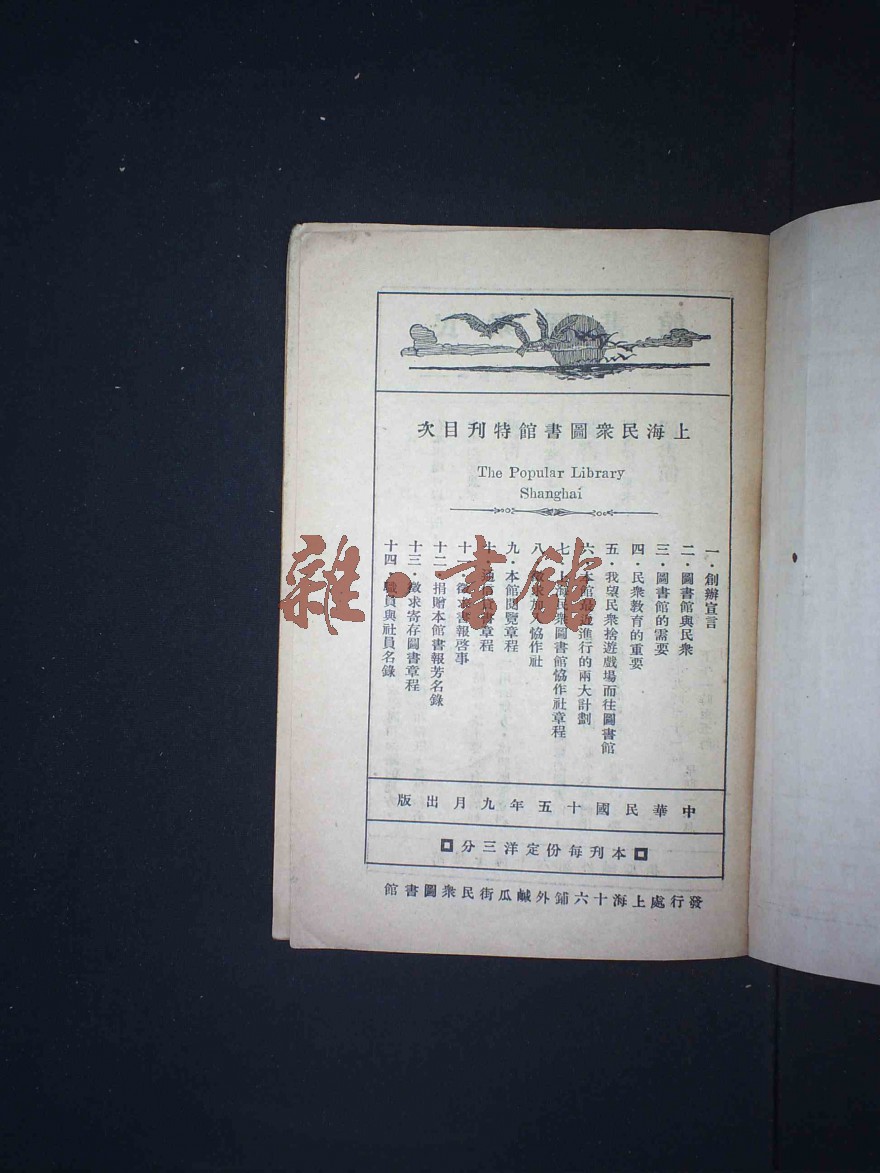 上海民衆圖書館特刊目次
The Popular Library
Shanghai
一・創辦宣言
二・圖書館與民衆
三・圖書館的需要
四・民衆教育的重要
五・我望民衆捨遊戲場而往圖書館
六・本館最近進行的兩大計劃
七・上海民衆圖書館協作社章程
八・徵求加入協作社
九・本館閱覽章程
十・通信借書章程
十一・徵求書報啓事
十二・捐贈本館書報芳名錄
十三・徵求寄存圖書章程
十四・職員與社員名錄
中華民國十五年九月出版
本刊每份定洋三分
發行處上海十六鋪外鹹瓜街民衆圖書館
雜・書館